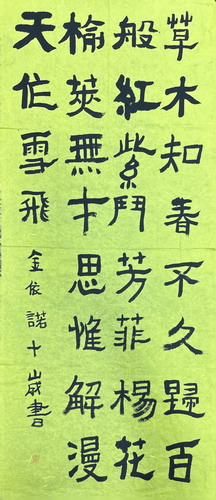 草木知春不久歸百
般紅紫鬥芳菲楊花
榆莢無才思惟解漫
天作雪飛
金依諾十歲書